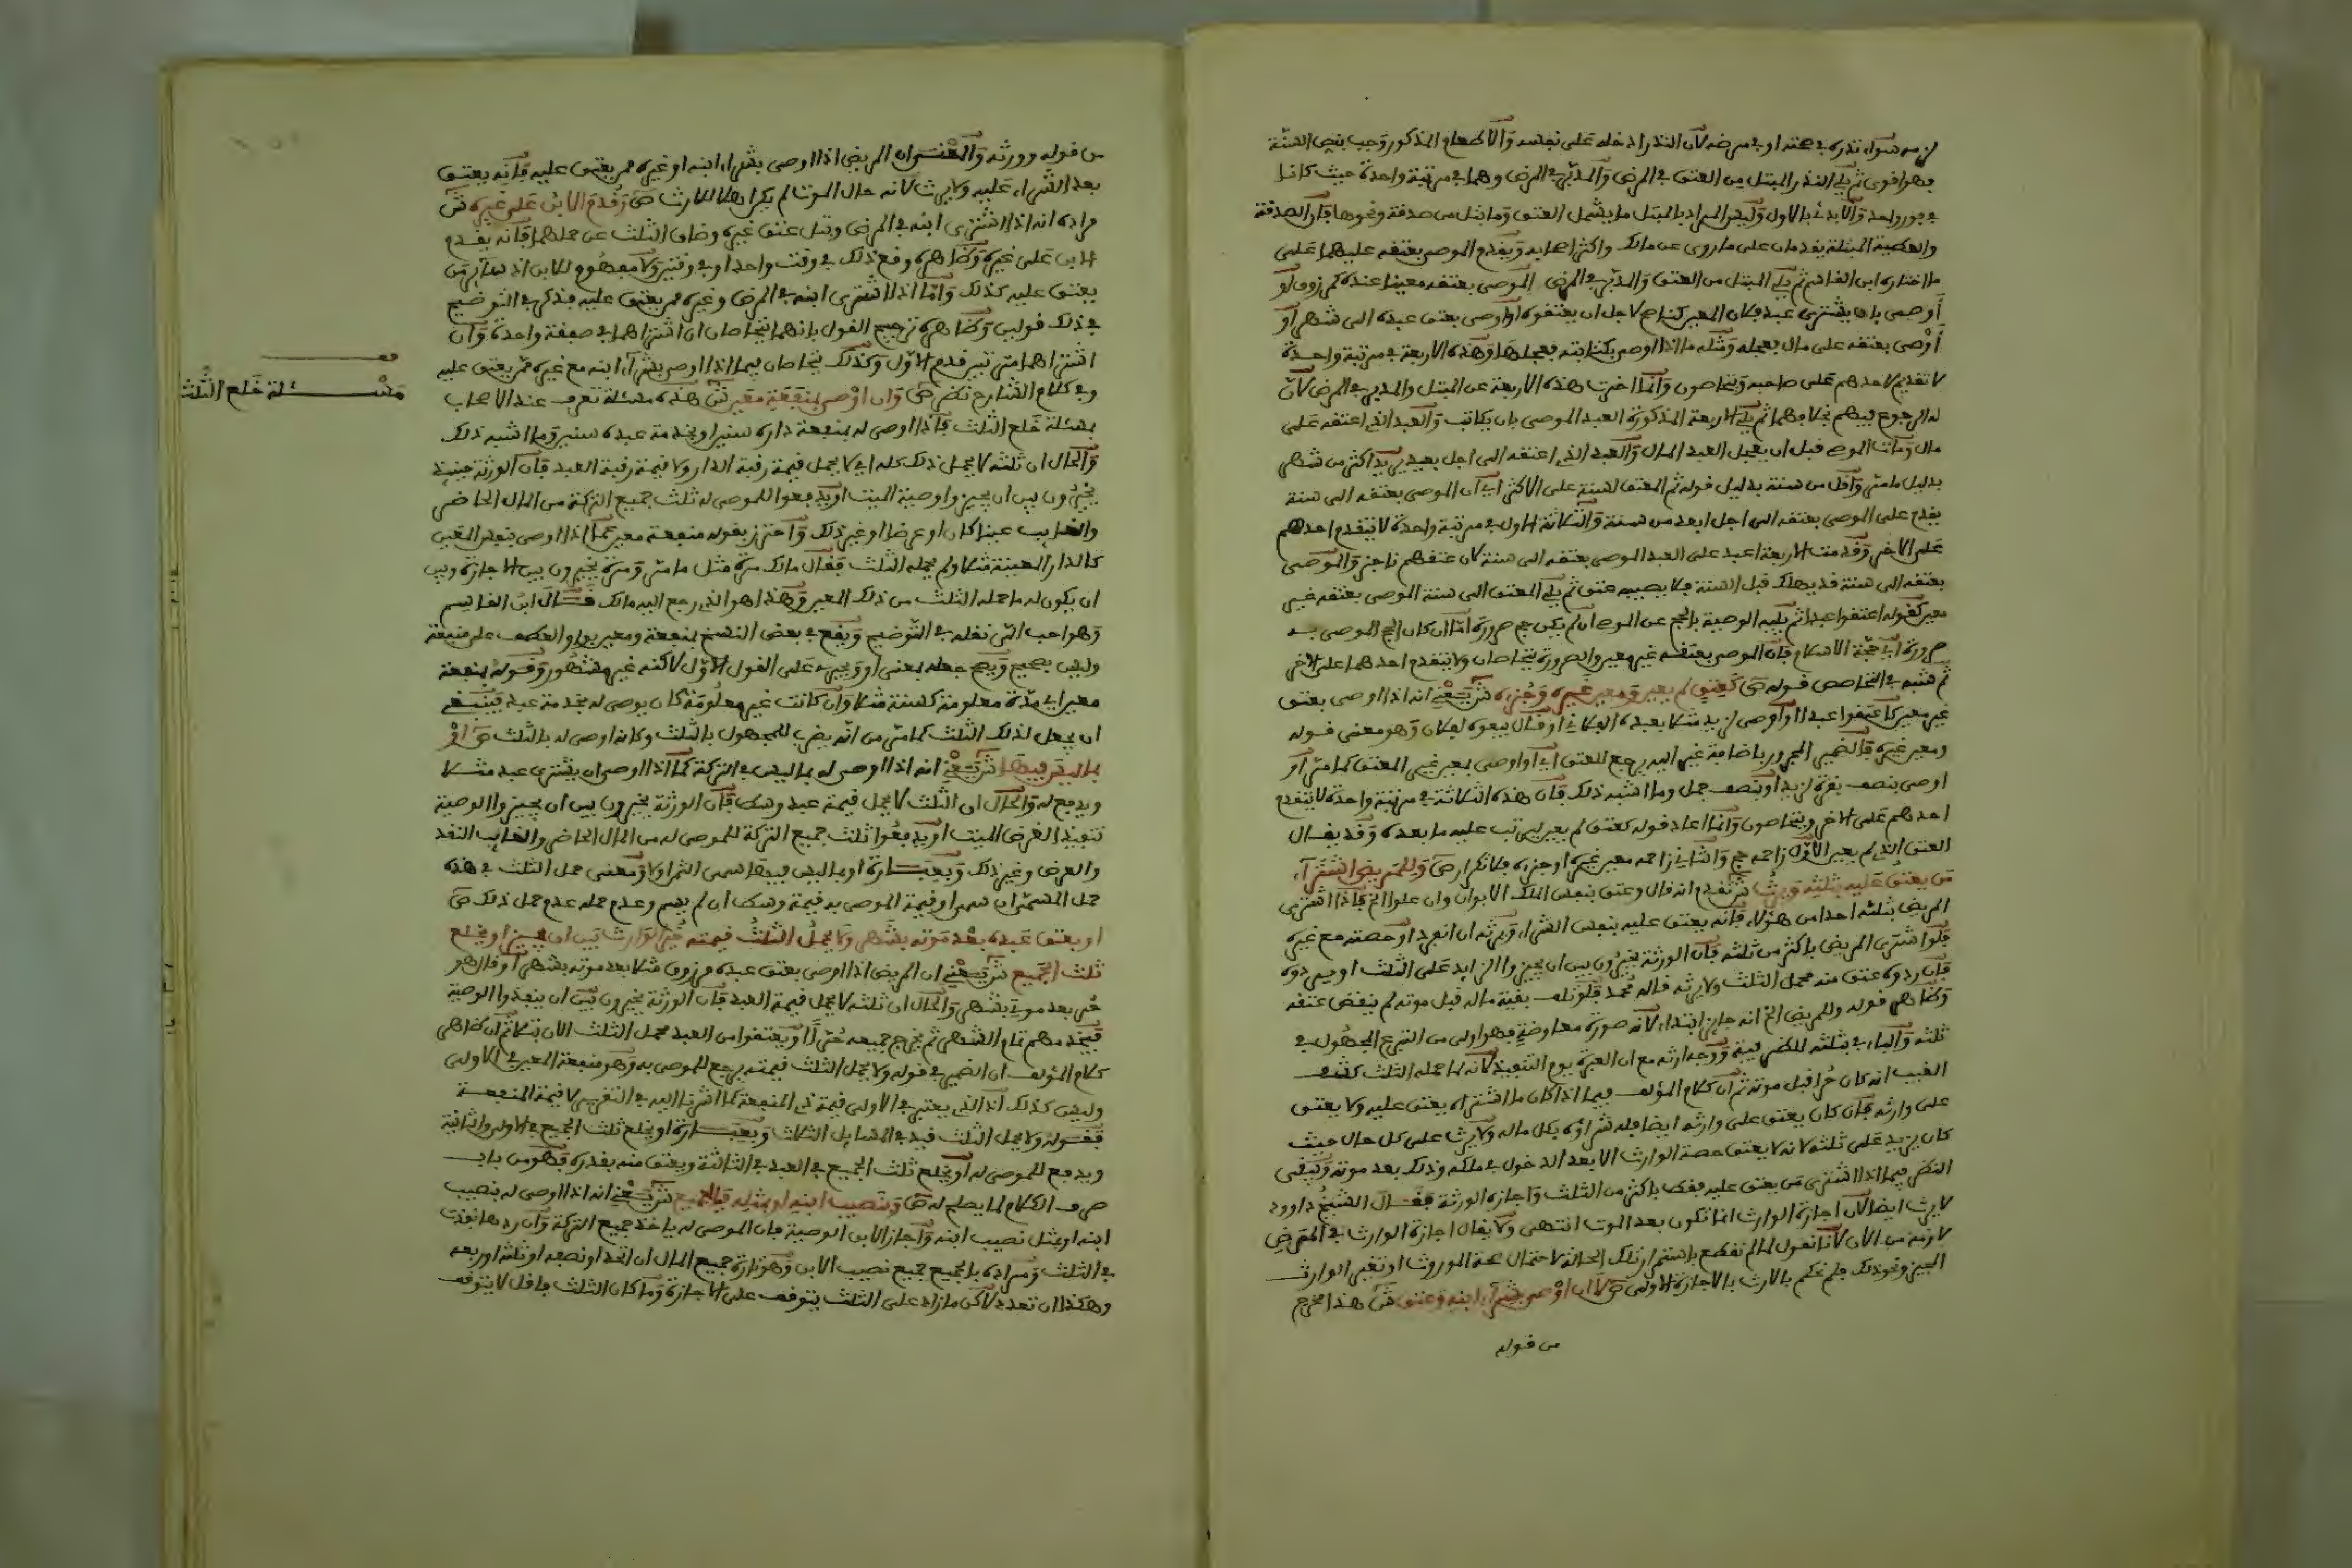 لزمه سواء نذره في صحته او في مرضه لان النذر ادخله على نفسه والاطعام المذكور وجب بنص السنة
فهو اقوى ثم يلي النذر المبتل من العتق في المرض والمدبر في المرض وهما في مرتبة واحدة حيث كانا
في فور واحد والا بدئ بالاول وليس المراد بالمبتل ما يشمل العتق وما بتل من صدقة ونحوها فان الصدقة
والعطية المبتلة يقدمان على ما روى عن مالك واكثر اصحابه ويقدم الموصى بعتقه عليهما على
ما اختاره ابن القاسم ثم يلي المبتل من العتق والمدبر في المرض الموصى بعتقه معينا عنده كمرزوق او
أوصى بان يشترى عبد فلان المعين كناصح لاجل ان يعتقوه او اوصى بعتق عبده الى شهر او
أوصى بعتقه على مال فعجله ومثله ما اذا اوصى بكتابته فعجلها وهذه الاربعة في مرتبة واحدة
لا تقديم لاحدهم على صاحبه ويتحاصون وانما اخرت هذه الاربعة عن المبتل والمدبر في المرض لان
له الرجوع فيهم بخلافهما ثم يلي الاربعة المذكورة العبد الموصى بان يكاتب والعبد الذي اعتقه على
مال ومات الموصي قبل ان يعجل العبد المال والعبد الذي اعتقه الى اجل بعيد يريد اكثر من شهر
بدليل ما مر واقل من سنة بدليل قوله ثم المعتق لسنة على الاكثر اي ان الموصى بعتقه الى سنة
يقدم على الموصى بعتقه الى اجل ابعد من سنة والثلاثة الاول في مرتبة واحدة لا يتقدم احدهم
على الاخر وقدمت الاربعة اعبد على العبد الموصى بعتقه الى سنة لان عتقهم ناجز والموصى
بعتقه الى سنة قد يهلك قبل السنة فلا يصيبه عتق ثم يلي المعتق الى سنة الموصى بعتقه غير
معين كقوله اعتقوا عبدا ثم يليه الوصية بالحج عن الموصي ان لم يكن حج صرورة اما ان كان الحج الموصى به
صرورة اي حجة الاسلام فان الموصى بعتقه غير معين والصرورة يتحاصان ولا يتقدم احدهما على الاخر
ثم شبه في التحاصص قوله ص كعتق لم يعين ومعين غيره وجزءه ش يعني انه اذا اوصى بعتق
غير معين كاعتقوا عبدا او اوصى لزيد مثلا بعبده الفلاني او قال بيعوه لفلان وهو معنى قوله
ومعين غيره فالضمير المجرور باضافة غير اليه يرجع للعتق اي او اوصى بمعين غير المعتق كما مر او
اوصى بنصف بقرة لزيد او نصف جمل وما اشبه ذلك فان هذه الثلاثة في مرتبة واحدة لا يتقدم
احدهم على الاخر ويتحاصون وانما اعاد قوله كعتق لم يعين ليرتب عليه ما بعده وقد يقال
العتق الذي لم يعين الاول زاحمه حج والثاني زاحمه معين غيره او جزءه فلا تكرار ص وللمريض اشتراء
من يعتق عليه بثلثه ويرث ش تقدم انه قال وعتق بنفس الملك الابوان وان علوا الخ فاذا اشترى
المريض بثلثه احدا من هؤلاء فانه يعتق عليه بنفس الشراء ويرثه ان انفرد او حصته مع غيره
فلو اشترى المريض باكثر من ثلثه فان الورثة يخيرون بين ان يجيزوا الزايد على الثلث او يردوه
فان ردوه عتق منه محمل الثلث ولا يرثه قاله محمد فلو تلف بقية ماله قبل موته لم ينقض عتقه
وظاهر قوله وللمريض الخ انه جايز ابتداء لانه صورة معاوضة فهو اولى من التبرع المجهول في
ثلثه والباء في بثلثه للظرفية ووجه ارثه مع ان العبرة يوم التنفيذ لانه لما حمله الثلث كشف
الغيب انه كان حرا قبل موته ثم ان كلام المؤلف فيما اذا كان ما اشتراه يعتق عليه ولا يعتق
على وارثه فان كان يعتق على وارثه ايضا فله شراؤه بكل ماله ولا يرث على كل حال حيث
كان يزيد على ثلثه لانه لا يعتق حصة الوارث الا بعد الدخول في ملكه وذلك بعد موته ويبقى
النظر فيما اذا اشترى من يعتق عليه فقط باكثر من الثلث واجازه الورثة فقال الشيخ داوود
لا يرث ايضا لان اجازة الوارث انما تكون بعد الموت انتهى ولا يقال اجازة الوارث في المرض
لازمة من الان لانا نقول لما لم نقطع باستمرار تلك الحالة لاحتمال صحة الموروث او تغير الوارث
المجيز ونحو ذلك فلم نحكم بالارث بالاجازة الاولى ص لا ان اوصى بشراء ابنه وعتق ش هذا مخرج
من قوله
من قوله وورثه والمعنى ان المريض اذا اوصى بشراء ابنه او غيره ممن يعتق عليه فانه يعتق
بعد الشراء عليه ولا يرث لانه حال الموت لم يكن اهلا للارث ص وقدم الابن على غيره ش
مراده انه اذا اشترى ابنه في المرض وبتل عتق غيره وضاق الثلث عن حملهما فانه يقدم
الابن على غيره وظاهره وقع ذلك في وقت واحد او في وقتين ولا مفهوم للابن اذ ساير من
يعتق عليه كذلك واما اذا اشترى ابنه في المرض وغيره ممن يعتق عليه فذكر في التوضيح
في ذلك قولين وظاهره ترجيح القول بانهما يتحاصان ان اشتراهما في صفقة واحدة وان
اشتراهما مترتبين قدم الاول وكذلك يتحاصان فيما اذا اوصى بشراء ابنه مع غيره ممن يعتق عليه
وفي كلام الشارح نظر ص وان اوصى بمنفعة معين ش هذه مسئلة تعرف عند الاصحاب
بمسئلة خلع الثلث فاذا اوصى له بمنفعة داره سنين او بخدمة عبده سنين وما اشبه ذلك
والحال ان ثلثه لا يحمل ذلك كله اي لا يحمل قيمة رقبة الدار ولا قيمة رقبة العبد فان الورثة حينئذ
يخيرون بين ان يجيزوا وصية الميت او يدفعوا للموصى له ثلث جميع التركة من المال الحاضر
والغايب عينا كان او عرضا او غير ذلك واحترز بقوله منفعة معين عما اذا اوصى بنفس المعين
كالدار المعينة مثلا ولم يحمله الثلث فقال مالك مرة مثل ما مر ومرة يخيرون بين الاجازة وبين
ان يكون له ما حمله الثلث من ذلك المعين وهذا هو الذي رجع اليه مالك قال ابن القاسم
وهو احب الي نقله في التوضيح ويقع في بعض النسخ بمنفعة ومعين بواو العطف على منفعة
وليس بصحيح ويصح جعله بمعنى او ويجري على القول الاول لاكنه غير مشهور وقوله بمنفعة
معين اي مدة معلومة كسنة مثلا وان كانت غير معلومة كان يوصى له بخدمة عبد فينبغي
ان يجعل لذلك الثلث كما مر من انه يضرب للمجهول بالثلث وكانه اوصى له بالثلث ص او
بما ليس فيها ش يعني انه اذا اوصى له بما ليس في التركة كما اذا اوصى ان يشترى عبد مثلا
ويدفع له والحال ان الثلث لا يحمل قيمة عبد وسط فان الورثة يخيرون بين ان يجيزوا الوصية
تنفيذا لغرض الميت او يدفعوا ثلث جميع التركة للموصى له من المال الحاضر والغايب النقد
والعرض وغير ذلك وبعبارة او بما ليس فيها سمى الثمن او لا ومعنى حمل الثلث في هذه
حمل المسمى ان سمى او قيمة الموصى به قيمة وسط ان لم يسم وعدم حمله عدم حمل ذلك ص
او بعتق عبده بعد موته بشهر ولا يحمل الثلث قيمته خير الوارث بين ان يجيز او يخلع
ثلث الجميع ش يعني ان المريض اذا اوصى بعتق عبده مرزوق مثلا بعد موته بشهر او قال هو
حر بعد موتي بشهر والحال ان ثلثه لا يحمل قيمة العبد فان الورثة يخيرون بين ان ينفذوا الوصية
فيخدمهم تمام الشهر ثم يخرج جميعه حرا او يعتقوا من العبد محمل الثلث الان بتلا ثم ان ظاهر
كلام المؤلف ان الضمير في قوله ولا يحمل الثلث قيمته يرجع للموصى به وهو منفعة المعين في الاولى
وليس كذلك اذ الذي يعتبر في الاولى قيمة ذي المنفعة كما اشرنا اليه في التقرير لا قيمة المنفعة
فقوله ولا يحمل الثلث قيد في المسايل الثلاث وبعبارة او يخلع ثلث الجميع في الاولى والثانية
ويدفع للموصى له او يخلع ثلث الجميع في العبد في الثالثة ويعتق منه بقدره فهو من باب
صرف الكلام لما يصلح له ص وبنصيب ابنه او مثله فبالجميع ش يعني انه اذا اوصى له بنصيب
ابنه او بمثل نصيب ابنه واجاز الابن الوصية فان الموصى له ياخذ جميع التركة وان ردها نفذت
في الثلث ومراده بالجميع جميع نصيب الابن وهو تارة جميع المال ان اتحد او نصفه او ثلثه او ربعه
وهكذا ان تعدد لاكن ما زاد على الثلث يتوقف على الاجازة وما كان الثلث فاقل لا يتوقف
قف
مسئلة خلع الثلث